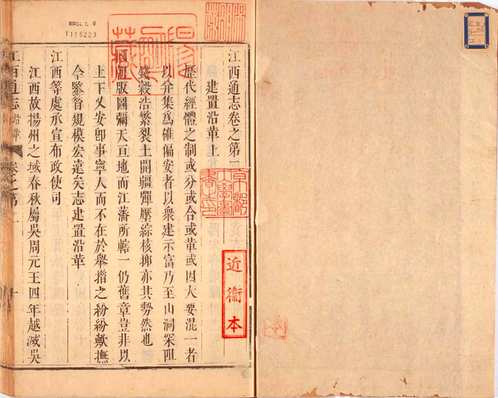 江西通志卷之第二
建置沿革上
歷代經體之制或分或合或革或因大要混一者
以介集為雄偏安者以衆建示富乃至山洞深阻
錢穀浩繁裂土開疆彈壓綜核抑亦其勢然也
版圖彌天亘地而江藩所轄一仍舊章豈非以
上下乂安卽事寧人而不在於舉措之紛紛歟撫
今鑒昔規模宏遠矣志建置沿革
江西等處承宣布政使司
江西故揚州之域春秋屬吳周元王四年越滅吳
江西通志
卷之第二
近衞本
1115223